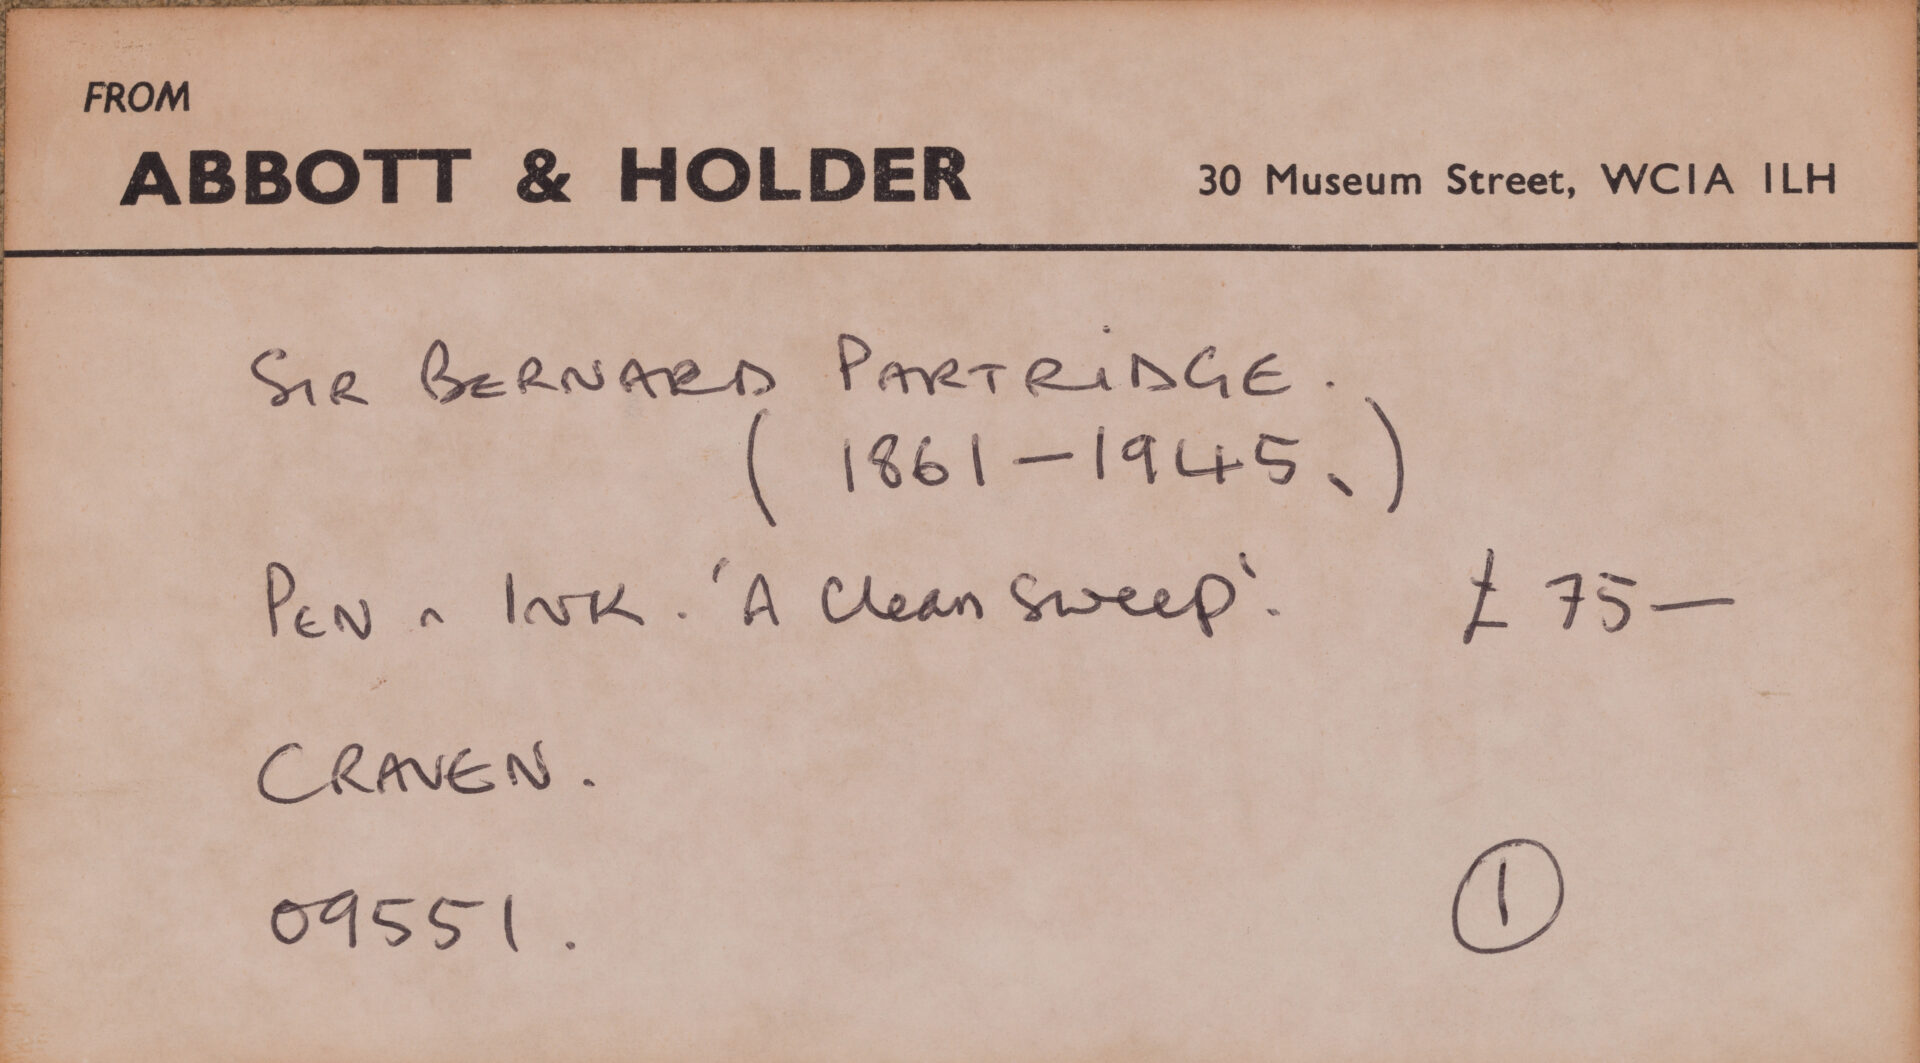 FROM
ABBOTT & HOLDER 30 Museum Street, WC1A 1LH
SIR BERNARD PARTRIDGE.
(1861-1945.)
PEN n INK. 'A Clean Sweep'. £75—
CRAVEN.
09551.
1